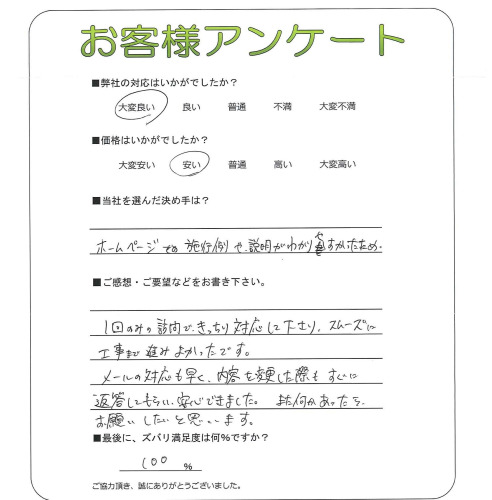 お客様アンケート
■弊社の対応はいかがでしたか？
大変良い 良い 普通 不満 大変不満
■価格はいかがでしたか？
大変安い 安い 普通 高い 大変高い
■当社を選んだ決め手は？
ホームページでの施行例や、説明がわかりやすかったため。
■ご感想・ご要望などをお書き下さい。
1回のみの訪問で、きっちり対応して下さり、スムーズに
工事まで進みよかったです。
メールの対応も早く、内容を変更した際もすぐに
返答してもらい、安心できました。また何かあったら、
お願いしたいと思います。
■最後に、ズバリ満足度は何%ですか？
100 %
ご協力頂き、誠にありがとうございました。